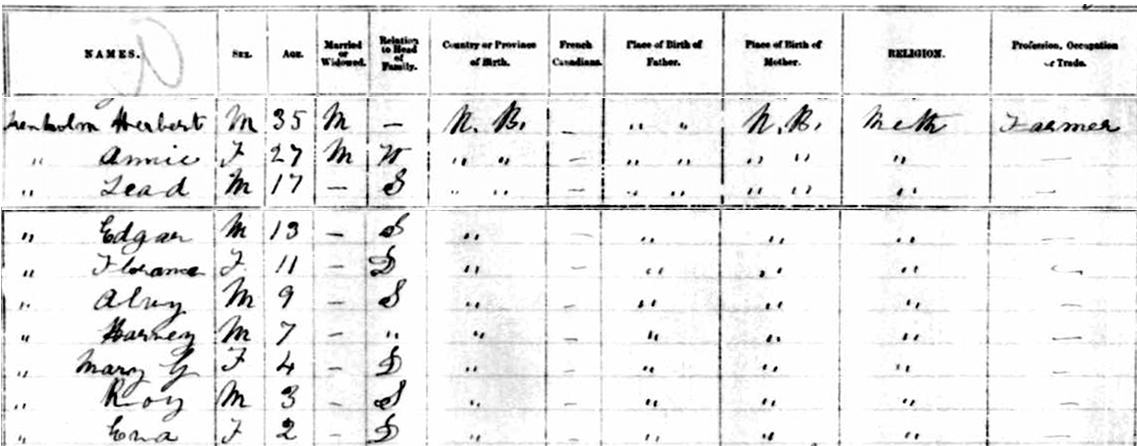 NAMES. SEX. AGE. Married or Widowed. Relation to Head of Family. Country or Province of Birth. French Canadians. Place of Birth of Father. Place of Birth of Mother. RELIGION. Profession, Occupation or Trade.
Herbert M 35 M — N. B. — " " N. B. Meth Farmer
" Annie F 27 M W " " — " " " " " —
" M 17 — S " " — " " " " " —
" Edgar M 13 — S " — " " " —
" Florance F 11 — D " — " " " —
" Alvey M 9 — S " — " " " —
" Harvey M 7 — " " — " " " —
" Mary G F 4 — D " — " " " —
" Roy M 3 — S " — " " " —
" F 2 — D " — " " " —